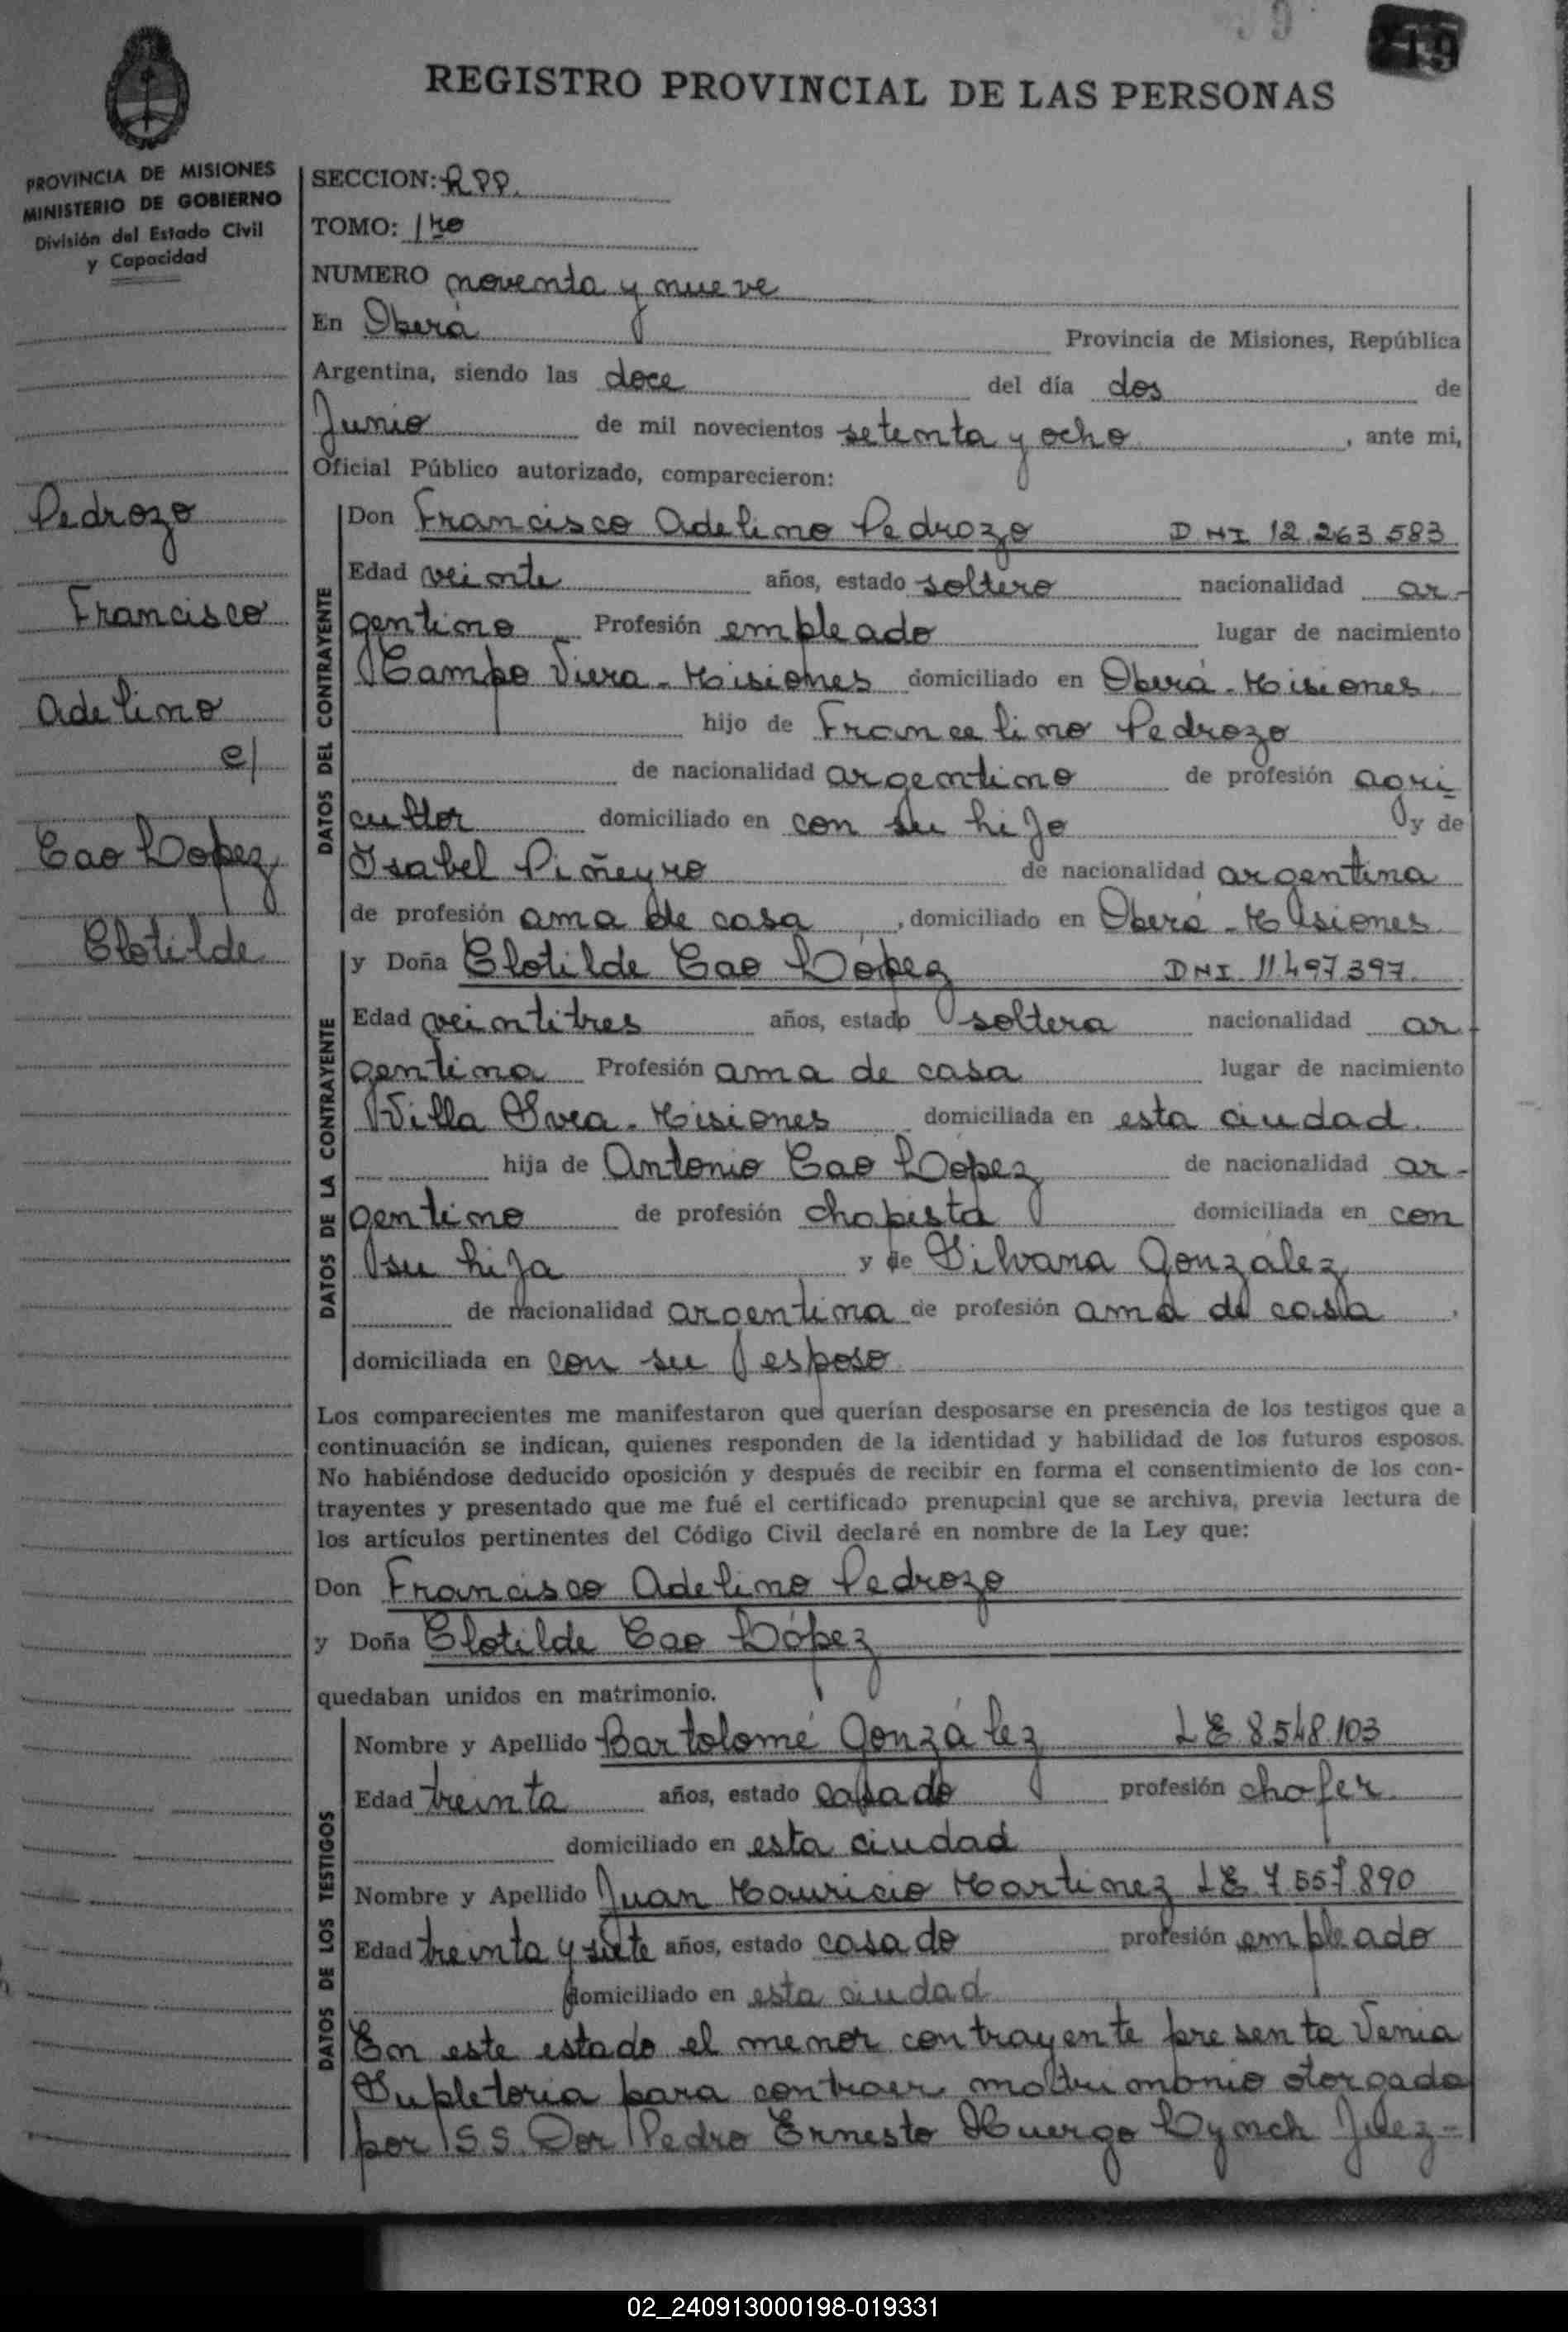 99
215
REGISTRO PROVINCIAL DE LAS PERSONAS
PROVINCIA DE MISIONES
MINISTERIO DE GOBIERNO
División del Estado Civil
y Capacidad
Pedrozo
Francisco
Adelino
c/
Cao Lopez
Clotilde
SECCION: RPP.
TOMO: 1ro
NUMERO noventa y nueve
En Oberá Provincia de Misiones, República
Argentina, siendo las doce del día dos de
Junio de mil novecientos setenta y ocho, ante mi,
Oficial Público autorizado, comparecieron:
DATOS DEL CONTRAYENTE
Don Francisco Adelino Pedrozo DNI 12.263.583
Edad veinte años, estado soltero nacionalidad ar-
gentino Profesión empleado lugar de nacimiento
Campo Viera - Misiones domiciliado en Oberá - Misiones
hijo de Francelino Pedrozo
de nacionalidad argentino de profesión agri-
cultor domiciliado en con su hijo y de
Isabel Piñeyro de nacionalidad argentina
de profesión ama de casa, domiciliado en Oberá - Misiones
DATOS DE LA CONTRAYENTE
y Doña Clotilde Cao López DNI 11.497.397.
Edad veintitres años, estado soltera nacionalidad ar-
gentina Profesión ama de casa lugar de nacimiento
Villa Svea - Misiones domiciliada en esta ciudad.
hija de Antonio Cao López de nacionalidad ar-
gentino de profesión chapista domiciliada en con
su hija y de Silvana González
de nacionalidad argentina de profesión ama de casa,
domiciliada en con su esposo
Los comparecientes me manifestaron que querían desposarse en presencia de los testigos que a
continuación se indican, quienes responden de la identidad y habilidad de los futuros esposos.
No habiéndose deducido oposición y después de recibir en forma el consentimiento de los con-
trayentes y presentado que me fué el certificado prenupcial que se archiva, previa lectura de
los artículos pertinentes del Código Civil declaré en nombre de la Ley que:
Don Francisco Adelino Pedrozo
y Doña Clotilde Cao López
quedaban unidos en matrimonio.
DATOS DE LOS TESTIGOS
Nombre y Apellido Bartolomé González LE 8.548.103
Edad treinta años, estado casado profesión chofer
domiciliado en esta ciudad
Nombre y Apellido Juan Mauricio Martinez LE 7.557.890
Edad treinta y siete años, estado casado profesión empleado
domiciliado en esta ciudad
En este estado el menor contrayente presenta Venia
Supletoria para contraer matrimonio otorgada
por S.S. Dor Pedro Ernesto Huergo Lynch Juez-
02_240913000198-019331